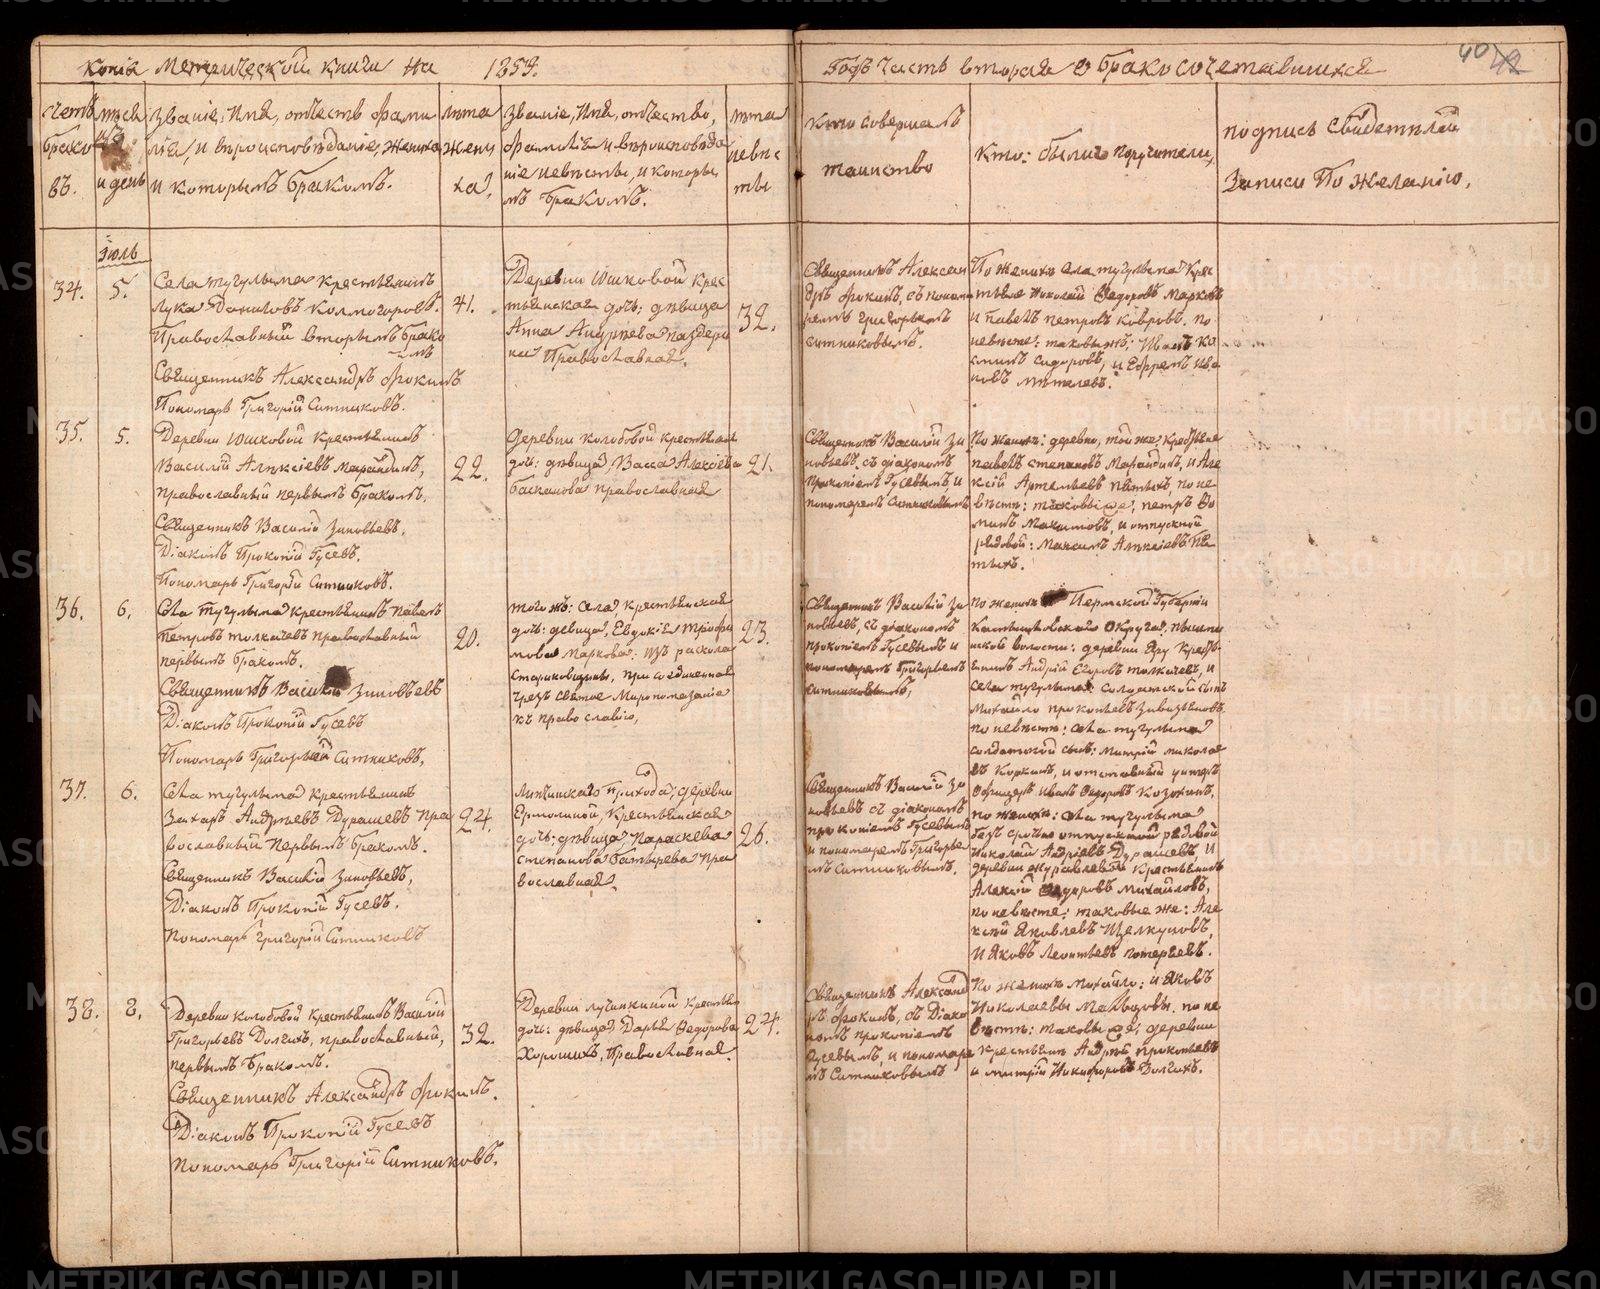 Копія Метрической книги на 1859.
Годъ Часть вторая о бракосочетавшихся
40
Счетъ браковъ.
и день
Званіе, Имя, отчество фамилія, и вѣроисповѣданіе, жениха и которымъ бракомъ.
лѣта жениха.
Званіе, Имя, отчество, фамилія и вѣроисповѣданіе невѣсты, и которымъ бракомъ.
лѣта невѣсты
Кто совершалъ таинство
Кто: были поручители,
подпись свидетелей записи По желанію,
Іюль
34.
5.
Села тугулыма крестьянинъ
Лука Даниловъ Колмогоровъ.
Православный вторымъ бракомъ
Священникъ Александръ Фокинъ
Пономарь Григорій Ситниковъ.
41.
Деревни Юшковой крес
тьянская дочь: дѣвица
Анна Андреева
Православная.
32.
Священникъ Алексан
дръ Фокинъ, съ поном
аремъ Григорьемъ
Ситниковымъ.
По женихѣ села тугулыма крес
тьяне Николай Федоровъ Марковъ
и павелъ петровъ ковровъ. по
невѣсте: таковыежъ: Иванъ Ко
сминъ Сидоровъ, и Ефремъ Ива
новъ
35.
5.
Деревни Юшковой крестьянинъ
Василій Алексіевъ Марандинъ,
православный первымъ бракомъ.
Священникъ Василій Зиновьевъ,
Діаконъ Прокопій Гусевъ.
Пономарь Григорій Ситниковъ.
22.
Деревни колобовой крестьянская
дочь: дѣвица, Васса Алексіева
православная
21.
Священникъ Василій Зи
новьевъ съ діакономъ
Прокопіемъ Гусевымъ и
пономаремъ Ситниковымъ
По женихѣ: деревни, той же крестьяне
павелъ степановъ Марандинъ, и Але
ксій Артемьевъ пятыхъ, по не
вѣсте: таковые же, петръ Фо
минъ Макимовъ, и отпускной
рядовой: Максимъ Алексіевъ пя
тыхъ.
36.
6.
Села тугулыма крестьянинъ павелъ
петровъ толкачевъ православный
первымъ бракомъ.
Священникъ Василій Зиновьевъ
Діаконъ Прокопій Гусевъ
Пономарь Григорій Ситниковъ.
20.
того жъ: села, крестьянская
дочь: девица, Евдокія Трофи
мова Маркова: изъ раскола
при соединенная
чрезъ святое Миропомазаніе
къ православію,
23.
Священникъ Василій Зи
новьевъ, съ діакономъ
прокопіемъ Гусевымъ и
пономаремъ Григорьемъ
Ситниковымъ,
по женихѣ Пермской Губерніи
Камышловскаго Округа,
волости: деревни Яру Крестья
нинъ Андрей Егоровъ толкачевъ, и
села тугулыма: солдатской сынъ
Михайло прокопьевъ
по невѣсте: села тугулыма
солдатской сынъ: Митрій никола
евъ Коркинъ, и отставный унтеръ
Офицеръ Иванъ Федоровъ Козохинъ.
37.
6.
Села тугулыма крестьянинъ
Захаръ Андреевъ Дурашевъ пра
вославный первымъ бракомъ.
Священникъ Василій Зиновьевъ,
Діаконъ Прокопій Гусевъ.
Пономарь Григорій Ситниковъ
24.
Липчинскаго прихода, деревни
Ермолиной, крестьянская
дочь: дѣвица, Параскева
степанова Батырева пра
вославная,
26.
Священникъ Василій Зи
новьевъ съ діакономъ
прокопіемъ Гусевымъ
и пономаремъ Григорье
мъ Ситниковымъ.
по женихѣ: села тугулыма
безъ срочно отпускной рядовой
Николай Андріевъ Дурашевъ и
деревни журавлевой крестьянинъ
Алексій Федоровъ Михайловъ,
по невѣсте: таковые же: Але
ксій Яковлевъ Щелкуновъ,
и Яковъ Леонтьевъ
38.
8.
Деревни колобовой крестьянинъ Василій
Григорьевъ Долгихъ, православный,
первымъ бракомъ.
Священникъ Александръ Фокинъ.
Діаконъ Прокопій Гусевъ
Пономарь Григорій Ситниковъ.
32.
Деревни лучинкиной крестьян
дочь: дѣвица, Дарья Федорова
Хорошихъ, православная.
24.
Священникъ Александ
ръ Фокинъ, съ Діако
номъ прокопіемъ
Гусевымъ, и пономаре
мъ Ситниковымъ
По женихѣ Михайло: и Яковъ
Николаевы Мальцовы. по не
вѣсте: таковые же, деревни
крестьяне Андрей прокопьевъ
и митрій Никифоровъ Долгихъ.
METRIKI.GASO-URAL.RU